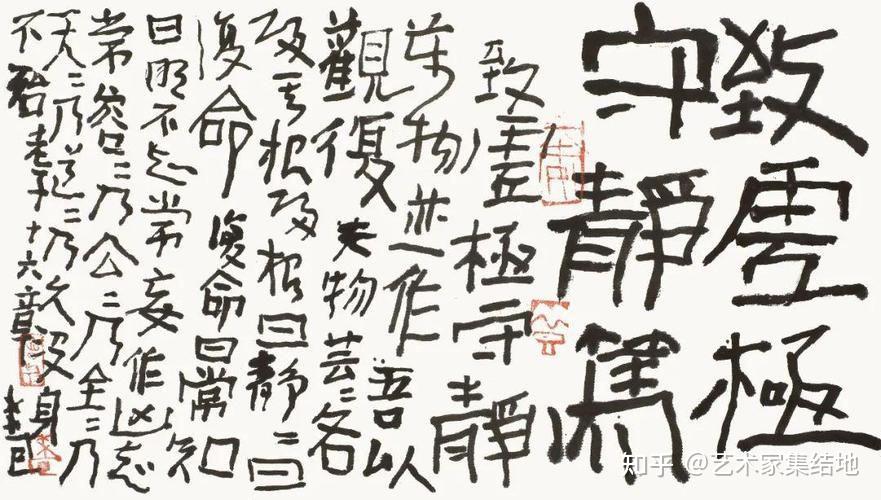 致虛極
守靜篤
致虛極守靜
萬物並作吾以
觀復夫物芸〻各
歸其根歸根曰靜〻曰
復命復命曰常知
曰明不知常妄作凶知
常容〻乃公〻乃全〻乃
天〻乃道〻乃久没身
不殆老子十六章
知乎 @艺术家集结地